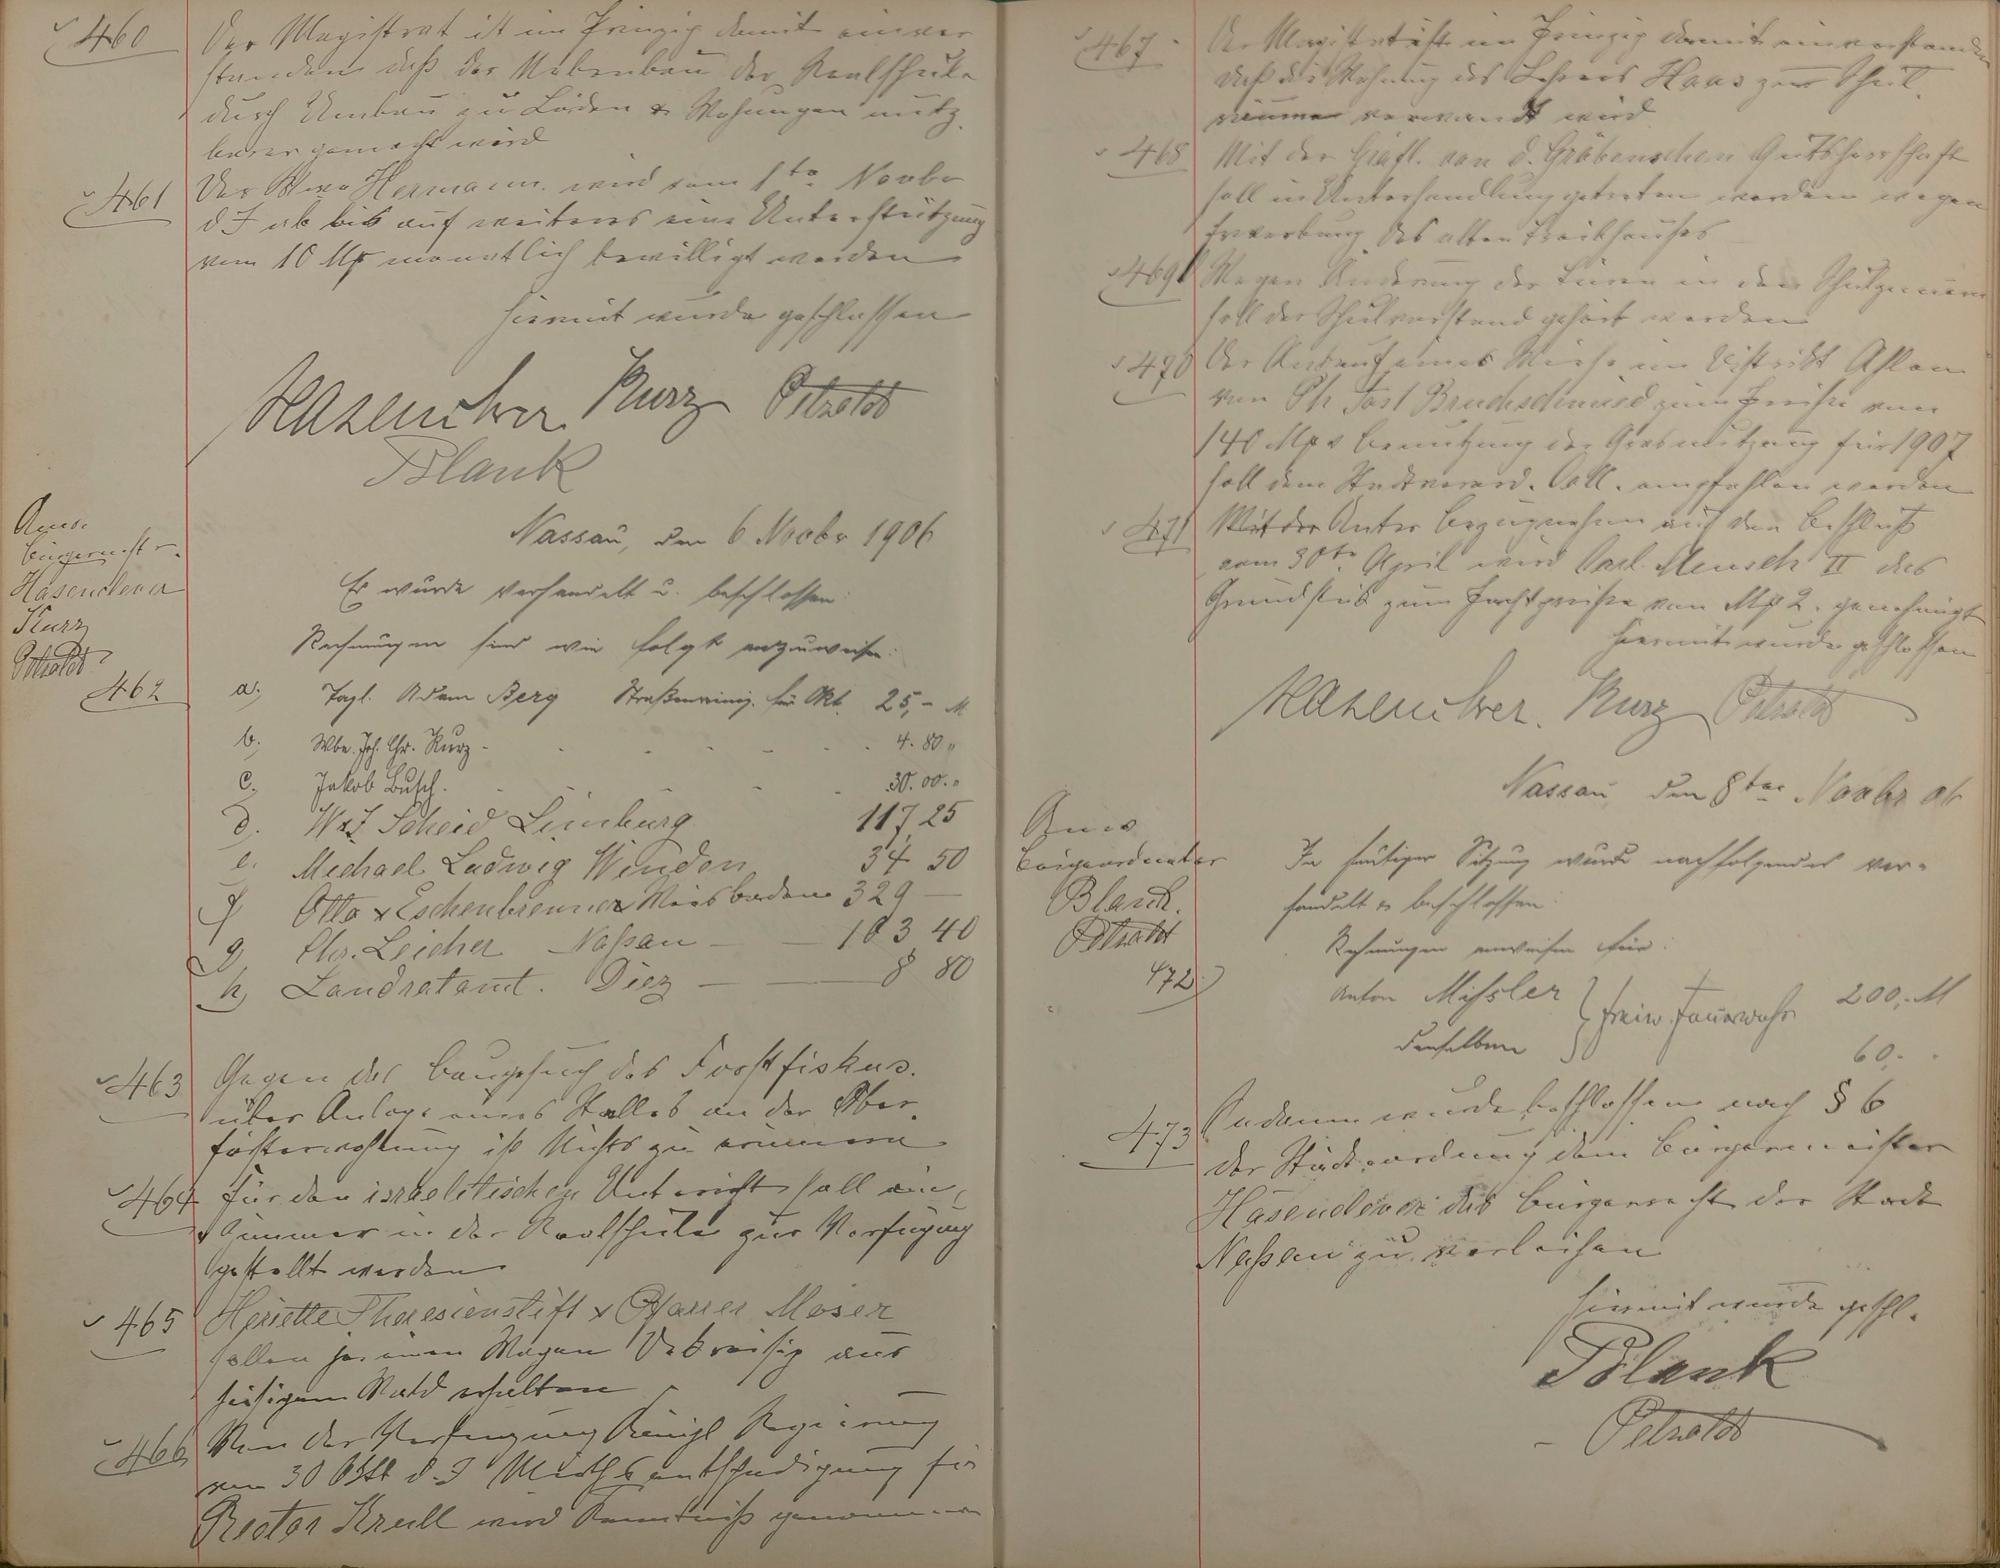 460 Der Magistrat ist im Prinzip damit einver
standen daß der Nebenbau der Realschule
durch Umbau zu Läden & Wohnungen nutz
barer gemacht wird
461 Der Wwe Hermann wird vom 1ten Novbr
d J ab bis auf weiteres eine Unterstützung
vom 10 Mk monatlich bewilligt werden
Hiermit wurde geschlossen
Hasenclever Kurz Petzoldt
Blank
Nassau, den 6 Novbr 1906
Anw.
Bürgermstr.
Hasenclever
Kurz
Petzoldt
Es wurde verhandelt u. beschlossen:
Rechnungen sind wie folgt anzuweisen:
462 a, Tagl. Adam Berg Straßenreinig. für Okt. 25,- M
b, Wwe. Joh. Chr. Kurz - 4.80 "
c. Jakob Busch. 30.00. "
d. W & J Scheid Limburg 117,25
e. Mechael Ludwig Winden 34 50
f Otto & Eschenbrenner Wiesbaden 329 -
g Chr. Leicher Naßau - - 103,40
h, Landratamt. Diez - - 8 80
463 Gegen das Baugesuch des Forstfiskus.
über Anlage eines Stalles an der Ober.
försterwohnung ist Nichts zu erinnern
464 Für den israelitischen Unterricht soll ein
Zimmer in der Realschule zur Verfügung
gestellt werden
465 Heriette Theresienstift & Pfarrer Moser
sollen je einen Wagen Dekreisig aus
hiesigem Wald erhalten
466 Von der Verfügung Königl Regierung
vom 30 Okt d. J Miethsentschädigung für
Rector Krull wird Kenntniß genommen
467 Der Magistrat ist im Prinzip damit einverstanden
daß die Wohnung des Lehrers Haas zur Schul.
räume verwandt wird
468 Mit der Gräfl. von d. Gräbenschen Gutsherrschaft
soll in Unterhandlung getreten werden wegen
Erwerbung des alten Treibhauses
469 Wegen Änderung der Türen in den
soll der Schulvorstand gehört werden
470 Der Ankauf eines Wiese im Distrikt
von Ph Jost Bruchschmied zum Preise von
140 Mk & Benutzung der Grasnutzung für 1907
soll dem Stadtverord. Coll. empfohlen werden
471 Mit der Unter Bezugnahme auf den Beschluß
vom 30ten April wird Carl Mensch II das
Grundstück zum Pachtpreise von Mk 2. genehmigt
Hiermit wurde geschlossen
Hasenclever. Kurz Petzoldt
Nassau den 8ten Novbr 06
Anw
Beigeordneter
Blank.
Petzoldt
In heutiger Sitzung wurde nachfolgendes ver-
handelt & beschlossen:
Rechnungen anweisen für:
472) Anton Mißler } freiw. Feuerwehr 200,- M
Denselben } 60,-
473 Sodann wurde beschlossen nach § 6
der Städteordnung dem Bürgermeister
Hasenclever das Bürgerrecht der Stadt
Naßau zu verleihen
Hiermit wurde geschl.
Blank
Petzoldt